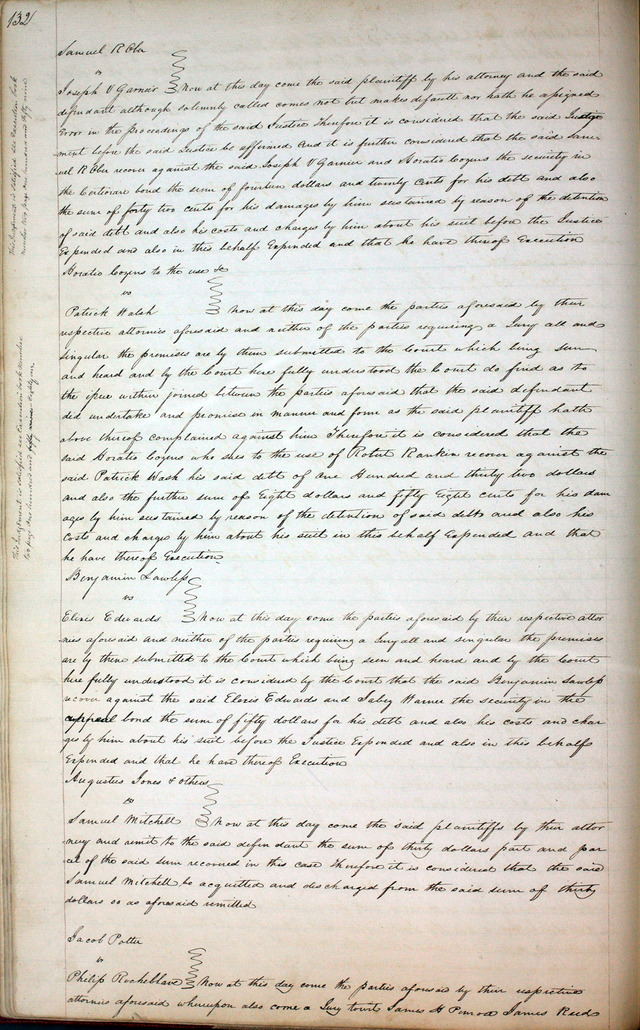 132
Samuel R Ober
vs
Joseph V Garnier Now at this day come the said plaintiff by his attorney and the said
defendant although solemnly called comes not but makes default nor hath he assigned
Error in the proceedings of the said Justice Therefore it is considered that the said Judge
ment before the said Justice be affirmed And it is further considered that the said Sam
uel R Ober recover against the said Joseph V Garnier and Horatio Cozens the security in
the Certiorari bond the sum of fourteen dollars and twenty cents for his debt and also
the sum of forty two cents for his damages by him sustained by reason of the detention
of said debt and also his costs and charges by him about his suit before the Justice
Expended and also in this behalf Expended and that he have thereof Execution
Horatio Cozens to the use &c
vs
Patrick Walsh Now at this day come the parties aforesaid by their
respective attornies aforesaid and neither of the parties requiring a Jury all and
singular the premises are by them submitted to the Court which being seen
and heard and by the Court here fully understood the Court do find as to
the issue within joined between the parties aforesaid that the said defendant
did undertake and promise in manner and form as the said plaintiff hath
above thereof complained against him Therefore it is considered that the
said Horatio Cozens who sues to the use of Robert Rankin recover against the
said Patrick Wash his said debt of one Hundred and thirty two dollars
and also the further sum of Eight dollars and fifty Eight cents for his dam
ages by him sustained by reason of the detention of said debt and also his
Costs and charges by him about his suit in this behalf Expended and that
he have thereof Execution
Benjamin Lawless
vs
Edwards Now at this day come the parties aforesaid by their respective attor
nies aforesaid and neither of the parties requiring a Jury all and singular the premises
are by them submitted to the Court which being seen and heard and by the Court
here fully understood it is considered by the Court that the said Benjamin
recover against the said Edwards and Jabez Warner the security in the
appeal bond the sum of fifty dollars for his debt and also his costs and char
ges by him about his suit before the Justice Expended and also in this behalf
Expended and that he have thereof Execution
Augustus Jones & others
vs
Samuel Mitchell Now at this day come the said plaintiffs by their attor
ney and remit to the said defendant the sum of thirty dollars part and par
cel of the said sum recovered in this case Therefore it is considered that the said
Samuel Mitchell be acquitted and discharged from the said sum of thirty
dollars so as aforesaid remitted
Jacob Potter
vs
Philip Rocheblave Now at this day come the parties aforesaid by their respective
attornies aforesaid whereupon also come a Jury towit James H Penrose James Reed
This Judgement is satisfied see Execution book
number two page one hundred and fifty nine
This Judgement is satisfied see Execution book number
two page one hundred and fifty nine eighty one